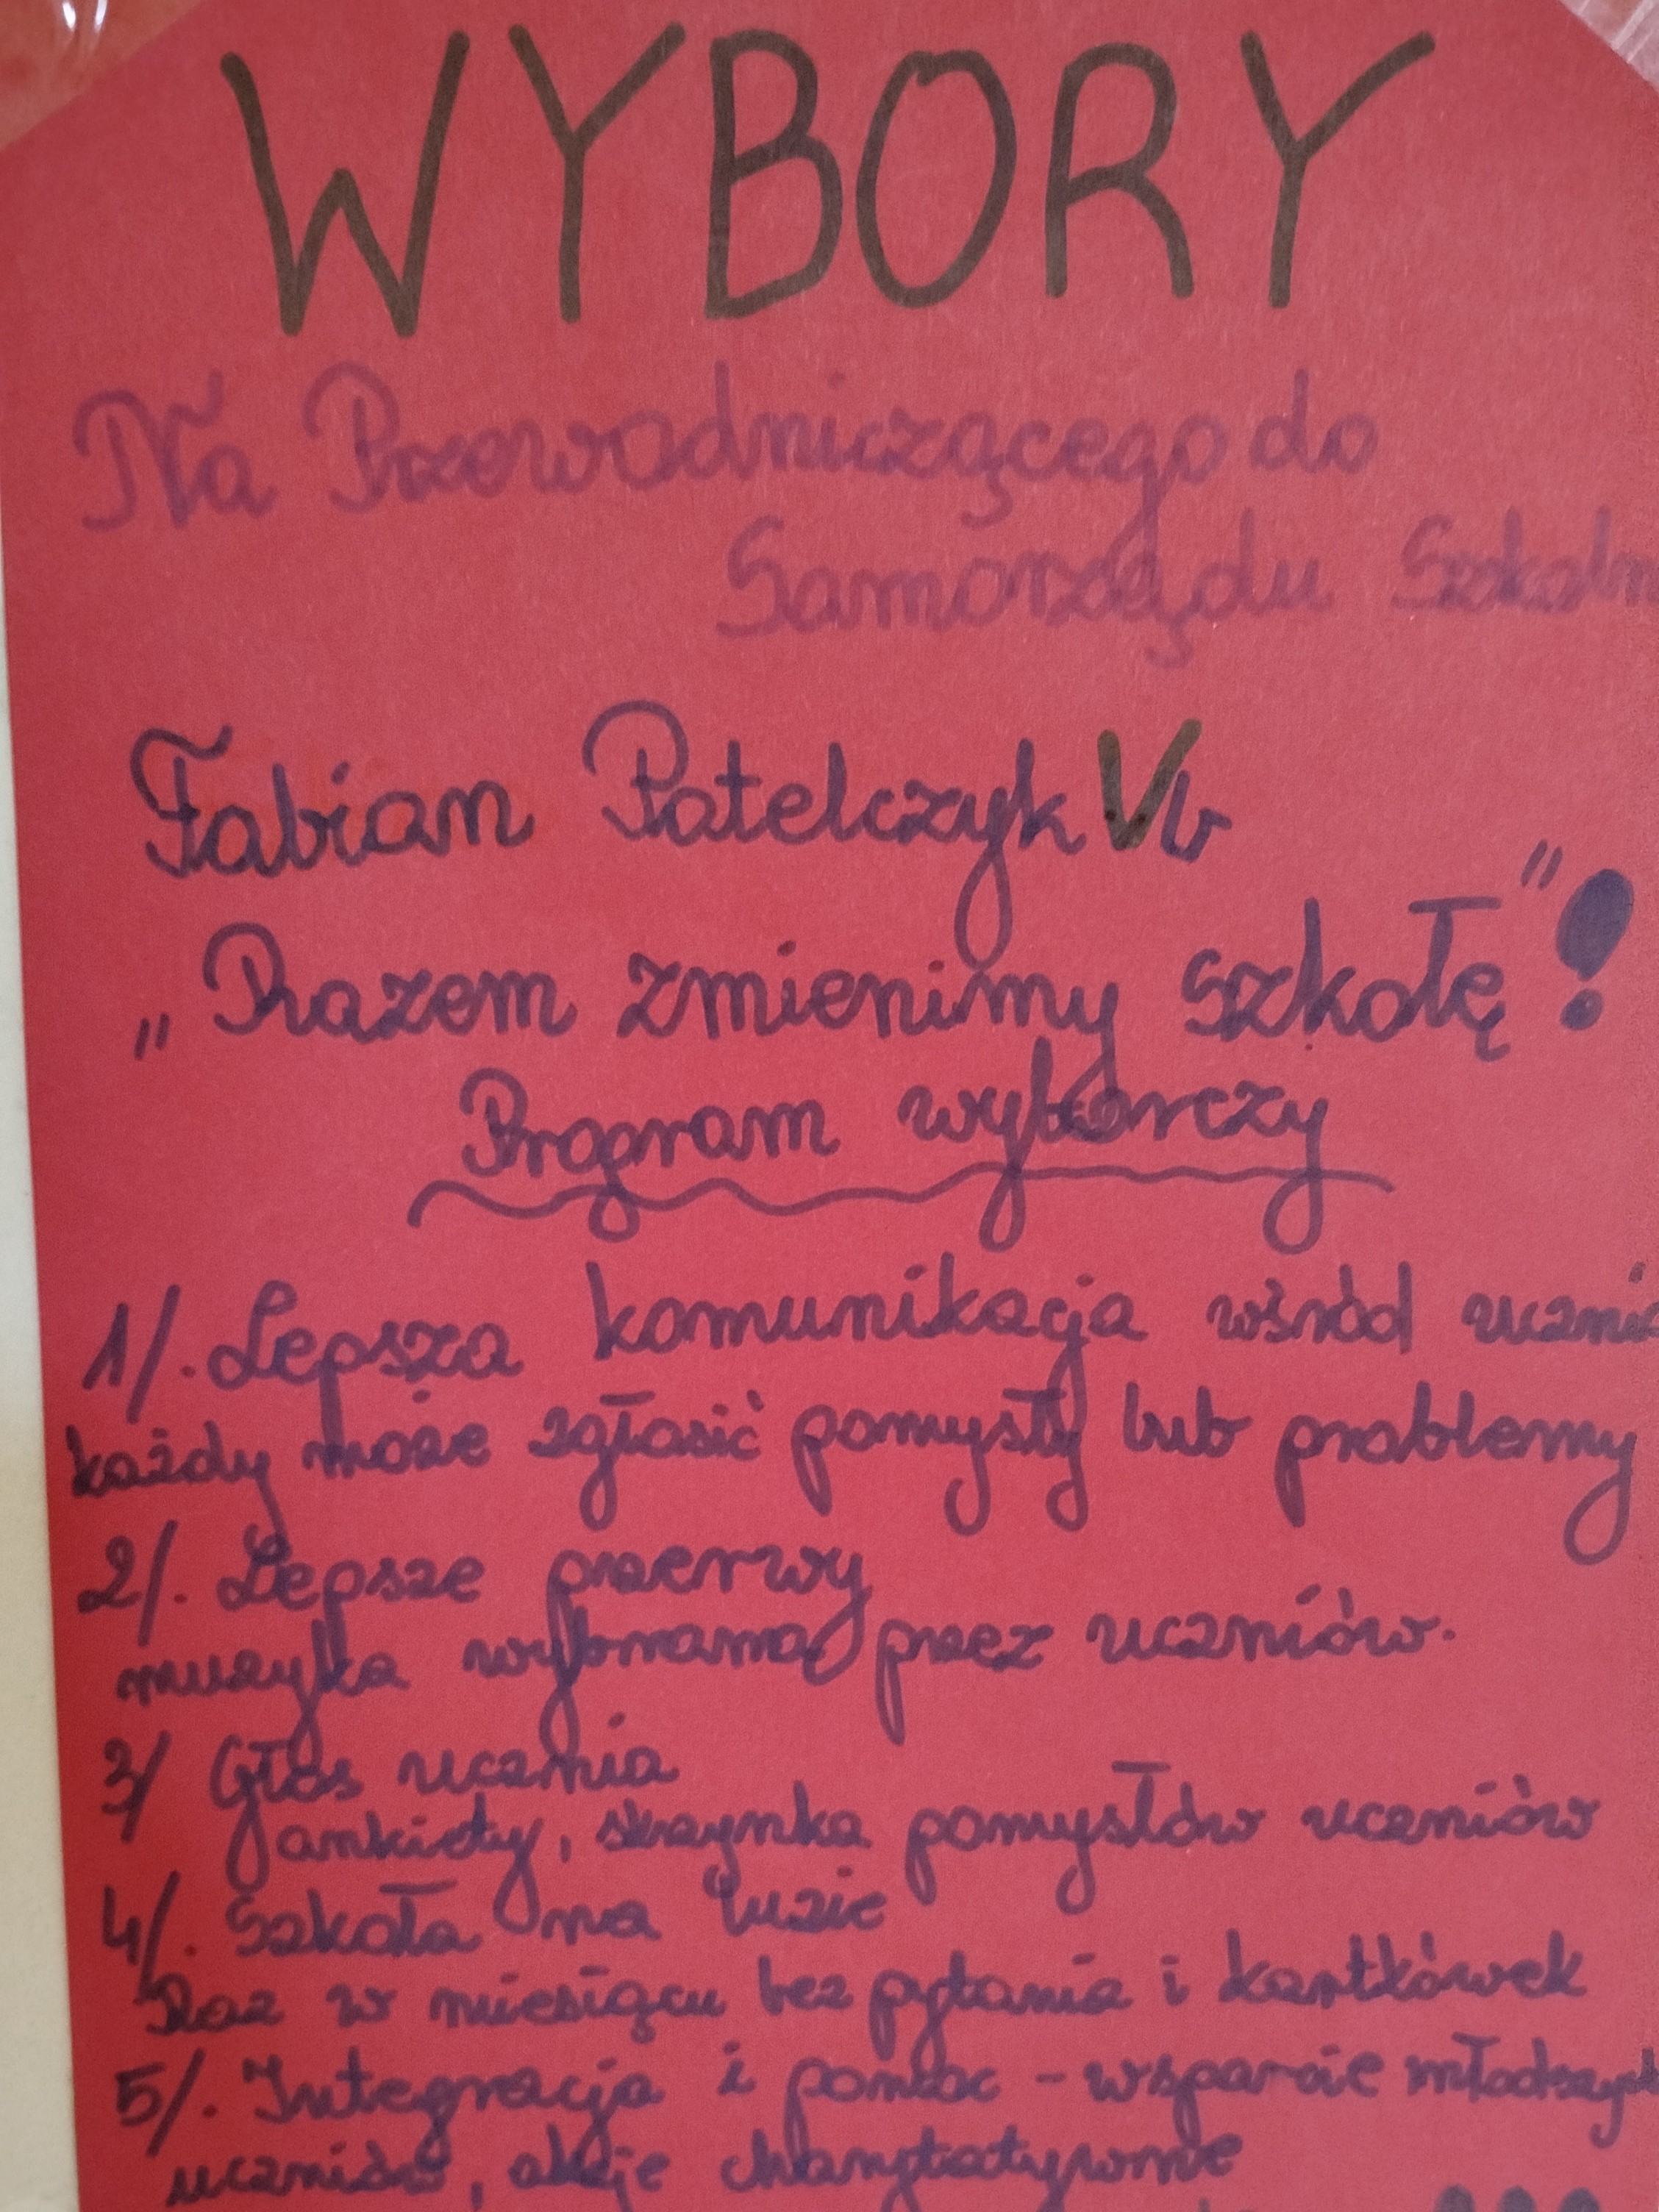 WYBORY
Na Przewodniczącego do
Samorządu Szkoln
Fabian Patelczyk Vb
„Razem zmienimy szkołę"!
Program wyborczy
1/. Lepsza komunikacja wśród uczni
każdy może zgłosić pomysły lub problemy
2/. Lepsze przerwy
muzyka wybrana przez uczniów.
3/ Głos ucznia
ankiety, skrzynka pomysłów uczniów
4/. Szkoła na luzie
Raz w miesiącu bez pytania i kartkówek
5/. Integracja i pomoc - wsparcie młodszych
uczniów, akcje charytatywne